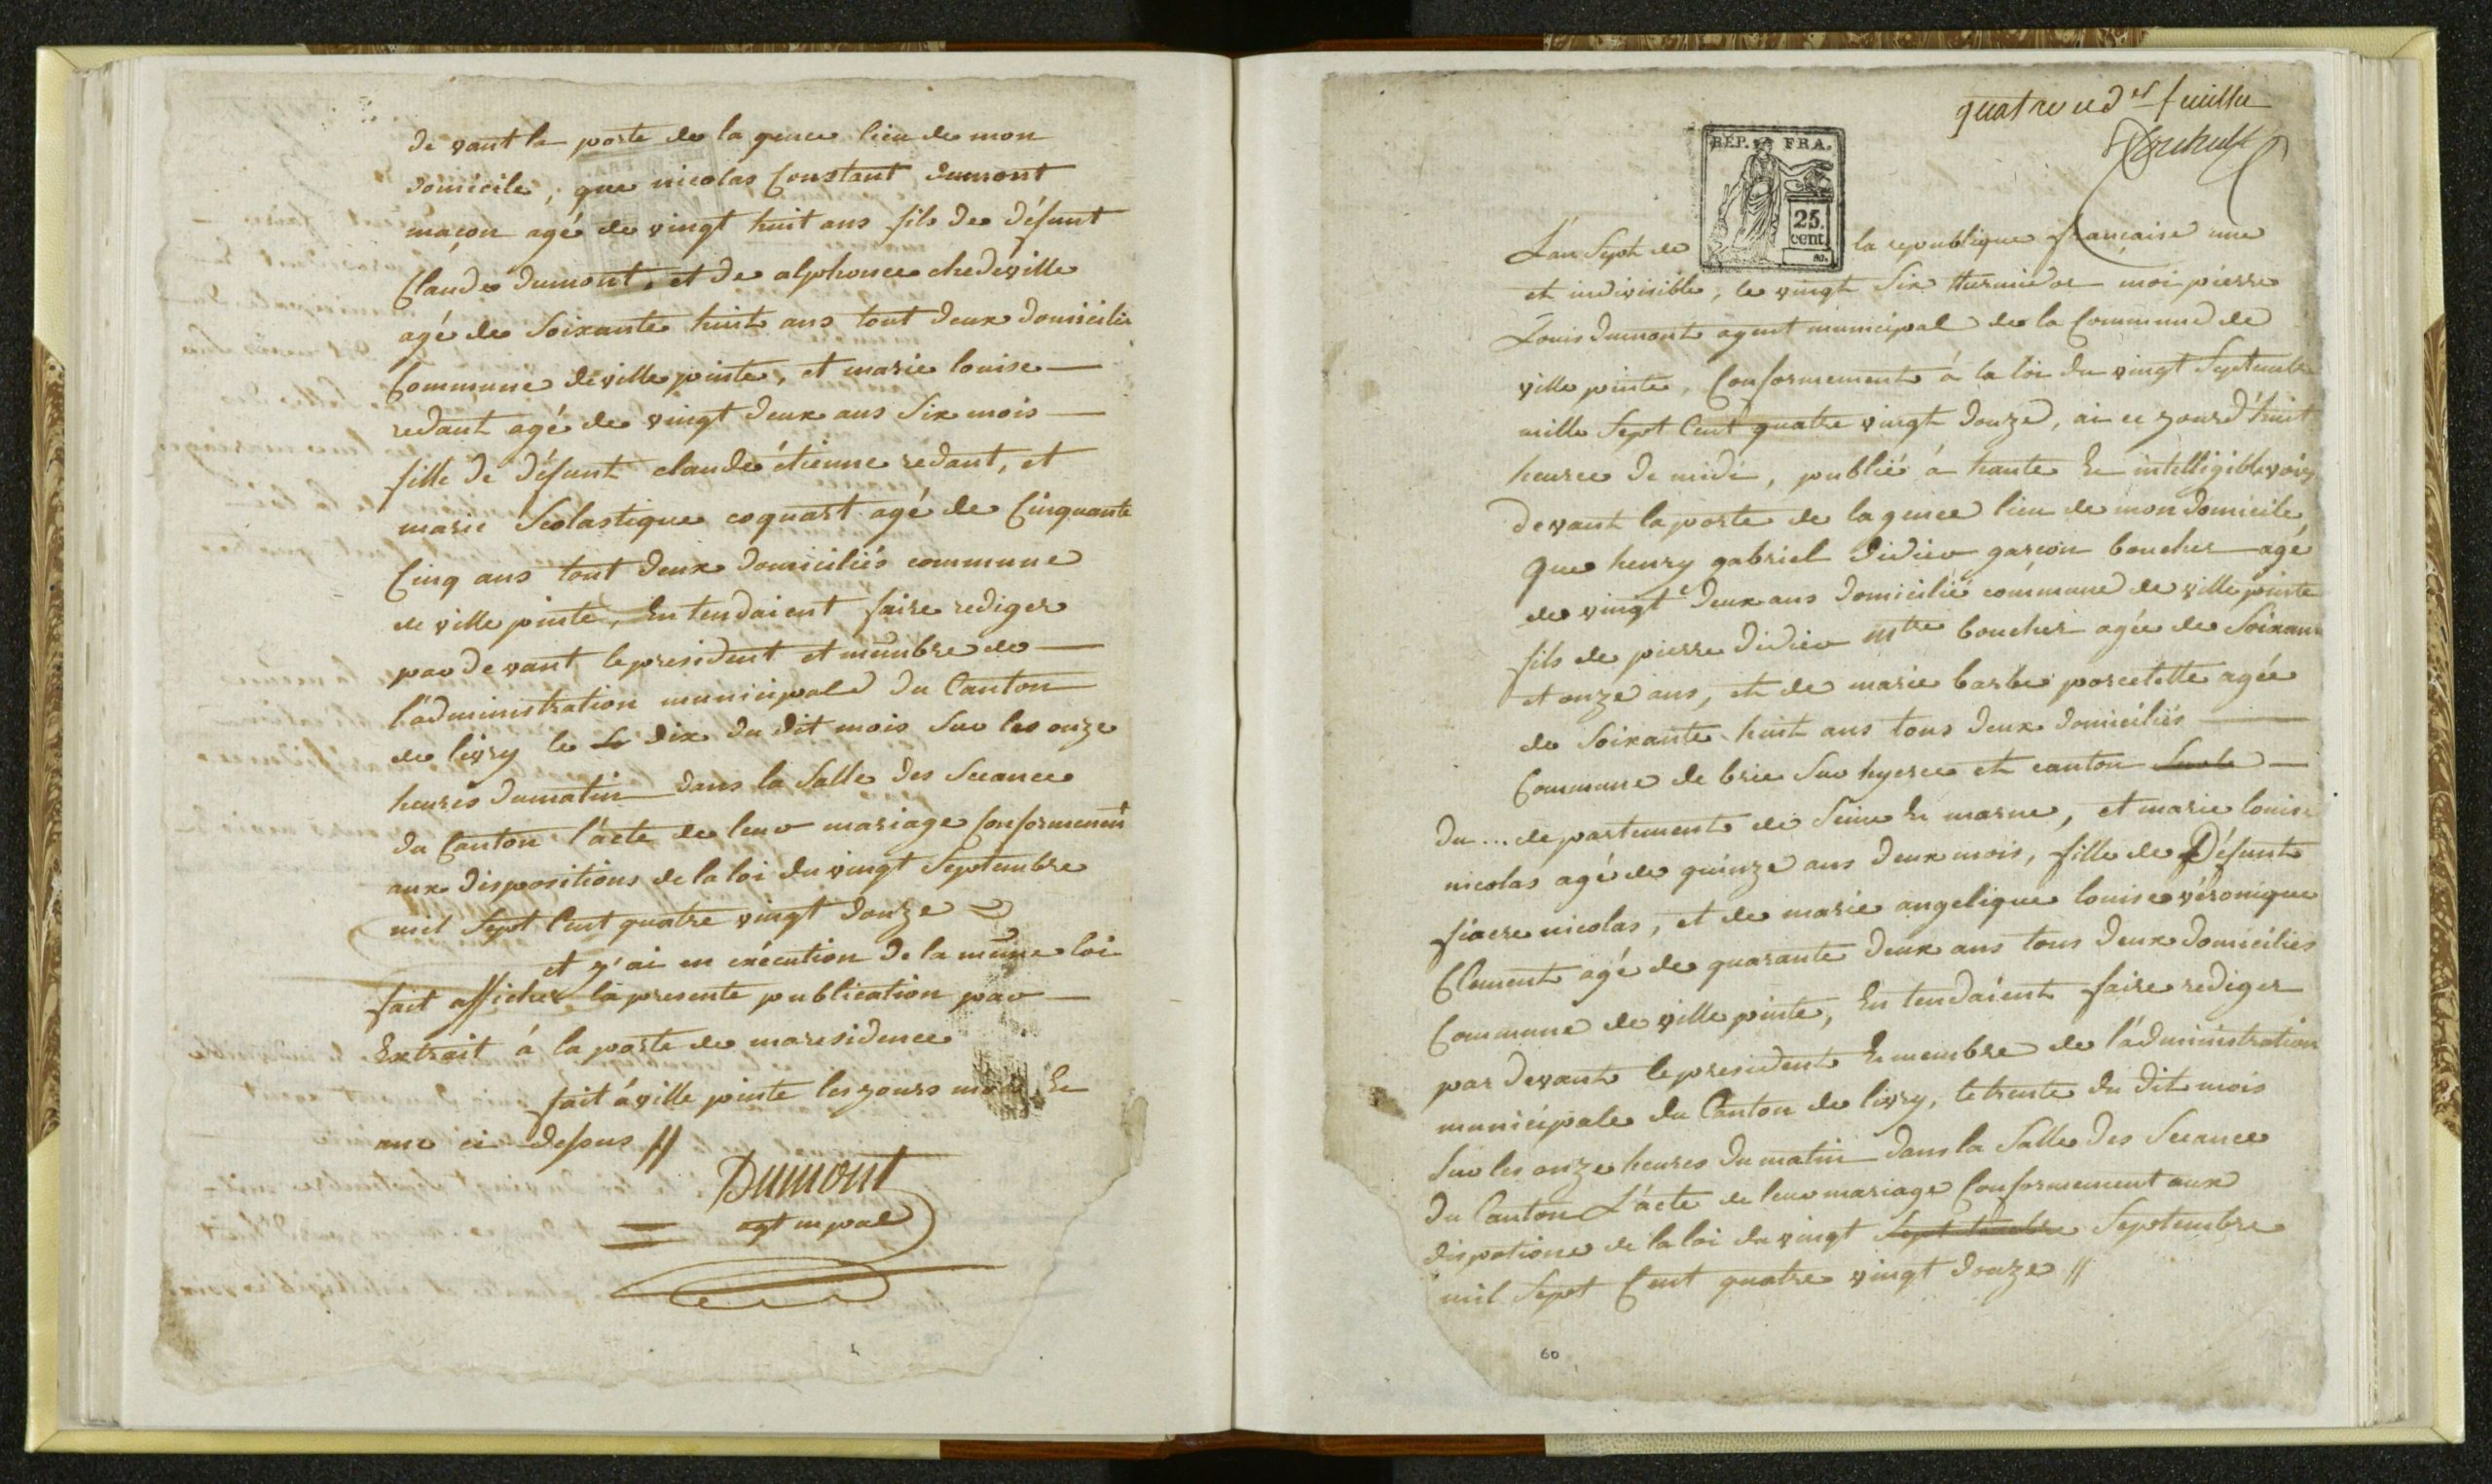 de vant la porte de la gence lieu de mon
domicile, que nicolas Constant dumont
maçon agé de vingt huit ans fils de défunt
Claude dumont, et de alphonce chedeville
agé de Soixante huit ans tout deux domicilié
Commune de ville pinte, et marie louise
redant agé de vingt deux ans Six mois
fille de défunt claude étienne redant, et
marie Scolastique coquart agé de Cinquante
Cinq ans tout deux domiciliés commune
de ville pinte, En tendaient faire rediger
par de vant le president et membre de
l'administration municipale du Canton
de livry le dix du dit mois Sur les onze
heures du matin dans la Salle des Seance
du Canton l'acte de leur mariage Conformement
aux dispositions de la loi du vingt Septembre
mil Sept Cent quatre vingt douze
et j'ai en exécution de la même loi
fait afficher la presente publication par
Extrait á la porte de ma residence
fait á ville pinte les jours mois Et
ans ci dessus //
Dumont
agt mpal
quatre et der feuille
REP. FRA.
25.
cent.
L'an Sept de la republique française une
et indivisible, le vingt Six thermidor moi pierre
Louis dumont agent municipal de la Commune de
ville pinte, Conformement á la loi du vingt Septembre
mille Sept Cent quatre vingt douze, ai ce jourd'huit
heures de midi, publié á haute Et intelligible voix
devant la porte de la gence lieu de mon domicile,
que henry gabriel didier garçon boucher agé
de vingt deux ans domicilié commune de ville pinte
fils de pierre didier mtre boucher agée de Soixante
et onze ans, et de marie barbe porcelette agée
de Soixante huit ans tous deux domiciliés
Commune de brie Sur hyerre et canton
du ... departement de Seine Et marne, et marie louise
nicolas agé de quinze ans deux mois, fille de Défunt
fiacre nicolas, et de marie angelique louise véronique
Clement agé de quarante deux ans tous deux domiciliés
Commune de ville pinte, En tendaient faire rediger
par devant le president Et membre de l'administration
municipale du Canton de livry, le trente du dit mois
Sur les onze heures du matin dans la Salle des Seance
du Canton L'acte de leur mariage Conformement aux
dispotions de la loi du vingt Septembre Septembre
mil Sept Cent quatre vingt douze //
60